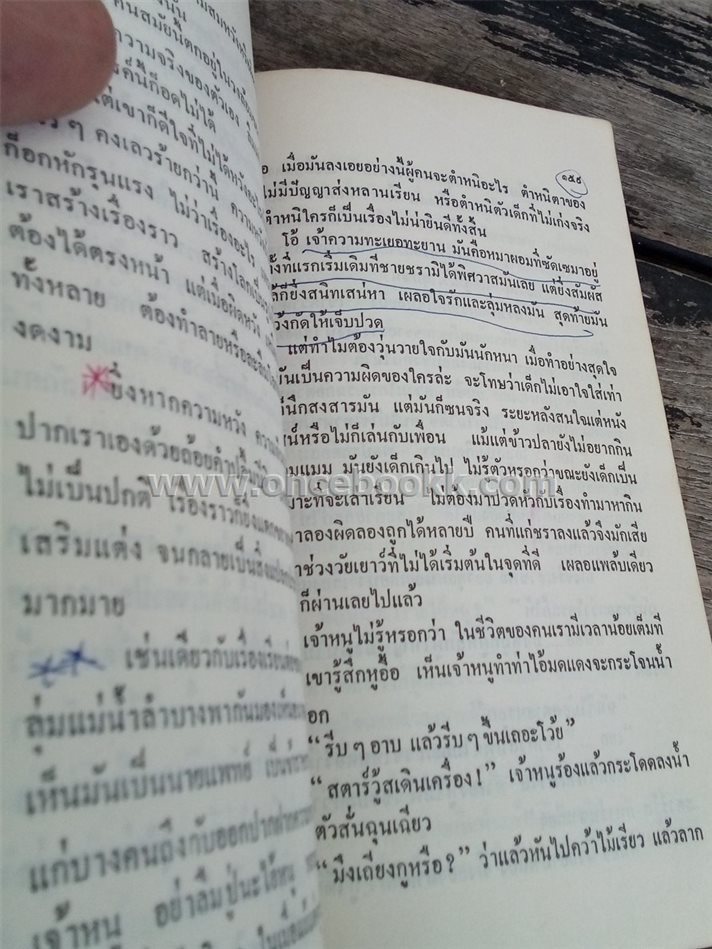 คนสมัยนี้ตกอยู่ใน
ความจริงของตัวเอง
นี้ก็อดไม่ได้
แต่เขาก็ดีใจที่ไม่ได้หวัง
ๆ คงเลวร้ายกว่านี้ ความ
ก็อกหักรุนแรง ไม่ว่าเรื่องอะไร
เราสร้างเรื่องราว สร้างโลก
ต้องได้ตรงหน้า แต่เมื่อผิดหวัง
ทั้งหลาย ต้องทำลายหรือ
งดงาม
ยิ่งหากความหวัง
ปากเราเองด้วยถ้อยคำ
ไม่เป็นปกติ เรื่องราวก็ยิ่ง
เสริมแต่ง จนกลายเป็น
มากมาย
เช่นเดียวกับเรื่องเรียน
ลุ่มแม่น้ำลำบางพากันมอง
เห็นมันเป็นนายแพทย์
แก่บางคนถึงกับออกปาก
เจ้าหนู อย่าลืมปู่นะไอ้หนู
๑๕๙
อ เมื่อมันลงเอยอย่างนี้ผู้คนจะตำหนิอะไร ตำหนิตาของ
ไม่มีปัญญาส่งหลานเรียน หรือตำหนิตัวเด็กที่ไม่เก่งจริง
ตำหนิใครก็เป็นเรื่องไม่น่ายินดีทั้งสิ้น
โอ้ เจ้าความทะเยอทะยาน มันคือหมาผอมที่ซัดเซมาอยู่
ที่แรกเริ่มเดิมทีชายชรามิได้พิศวาสมันเลย แต่ยิ่งสัมผัส
ก็ยิ่งสนิทเสน่หา เผลอใจรักและลุ่มหลงมัน สุดท้ายมัน
กัดให้เจ็บปวด
แต่ทำไมต้องวุ่นวายใจกับมันนักหนา เมื่อทำอย่างสุดใจ
มันเป็นความผิดของใครล่ะ จะโทษว่าเด็กไม่เอาใจใส่เท่า
นึกสงสารมัน แต่มันก็ซนจริง ระยะหลังสนใจแต่หนัง
หรือไม่ก็เล่นกับเพื่อน แม้แต่ข้าวปลายังไม่อยากกิน
มแมม มันยังเด็กเกินไป ไม่รู้ตัวหรอกว่าขณะยังเด็กเป็น
มาะที่จะเล่าเรียน ไม่ต้องมาปวดหัวกับเรื่องทำมาหากิน
าลองผิดลองถูกได้หลายปี คนที่แก่ชราลงแล้วจึงมักเสีย
ช่วงวัยเยาว์ที่ไม่ได้เริ่มต้นในจุดที่ดี เผลอแพล้บเดียว
ก็ผ่านเลยไปแล้ว
เจ้าหนูไม่รู้หรอกว่า ในชีวิตของคนเรามีเวลาน้อยเต็มที
เขารู้สึกหูอื้อ เห็นเจ้าหนูทำท่าไอ้มดแดงจะกระโจนน้ำ
อก
“รีบ ๆ อาบ แล้วรีบ ๆ ขึ้นเถอะโว้ย”
“สตาร์วู้สเดินเครื่อง!” เจ้าหนูร้องแล้วกระโดดลงน้ำ
ตัวสั่นฉุนเฉียว
“มึงเถียงกูหรือ?” ว่าแล้วหันไปคว้าไม้เรียว แล้วลาก
www.oncebookk.com